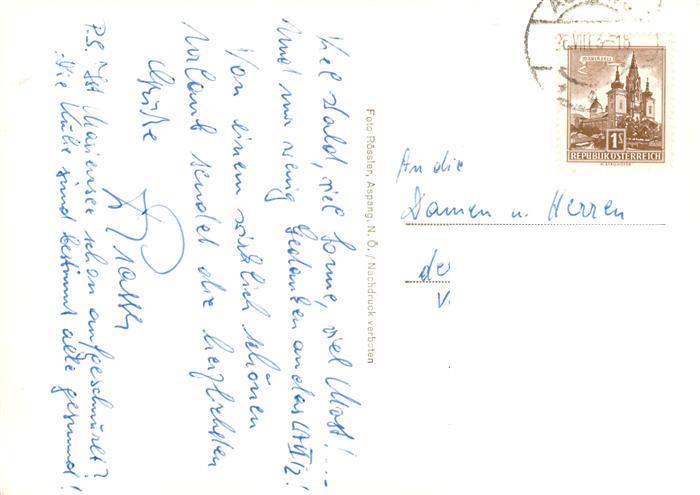 Viel Wald, viel Sonne, viel Most!....
Und nur wenig Gedanken an das
Von einem wirklich schönen
Urlaub sendet die herzlichsten
Grüße
P.S. Ist Mariensee schon aufgeschnürlt?
Die Kühe sind bestimmt alle gesund!
Foto Rössler, Aspang, N. Ö. / Nachdruck verboten
MARIAZELL
1S
REPUBLIK ÖSTERREICH
An die
Damen u. Herren
de
V.